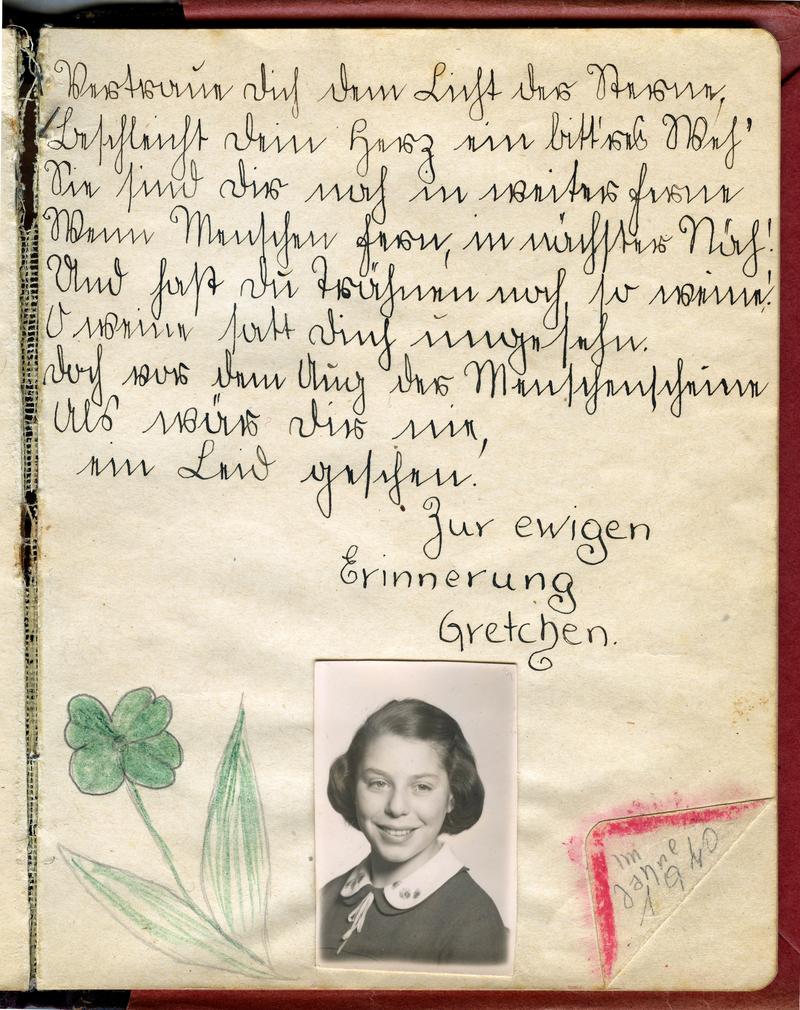 Vertraue Dich dem Licht der Sterne,
Beschleicht Dein Herz ein bitt'res Weh'
Sie sind Dir nah in weiter ferne
Wenn Menschen fern, in nächster Näh'!
Und hast Du Trähnen noch, so weine!
O weine satt Dich ungesehn.
Doch vor dem Aug der Menschenscheine
Als wär Dir nie,
ein Leid geschen.
Zur ewigen
Erinnerung
Gretchen.
im
Jahre
1940